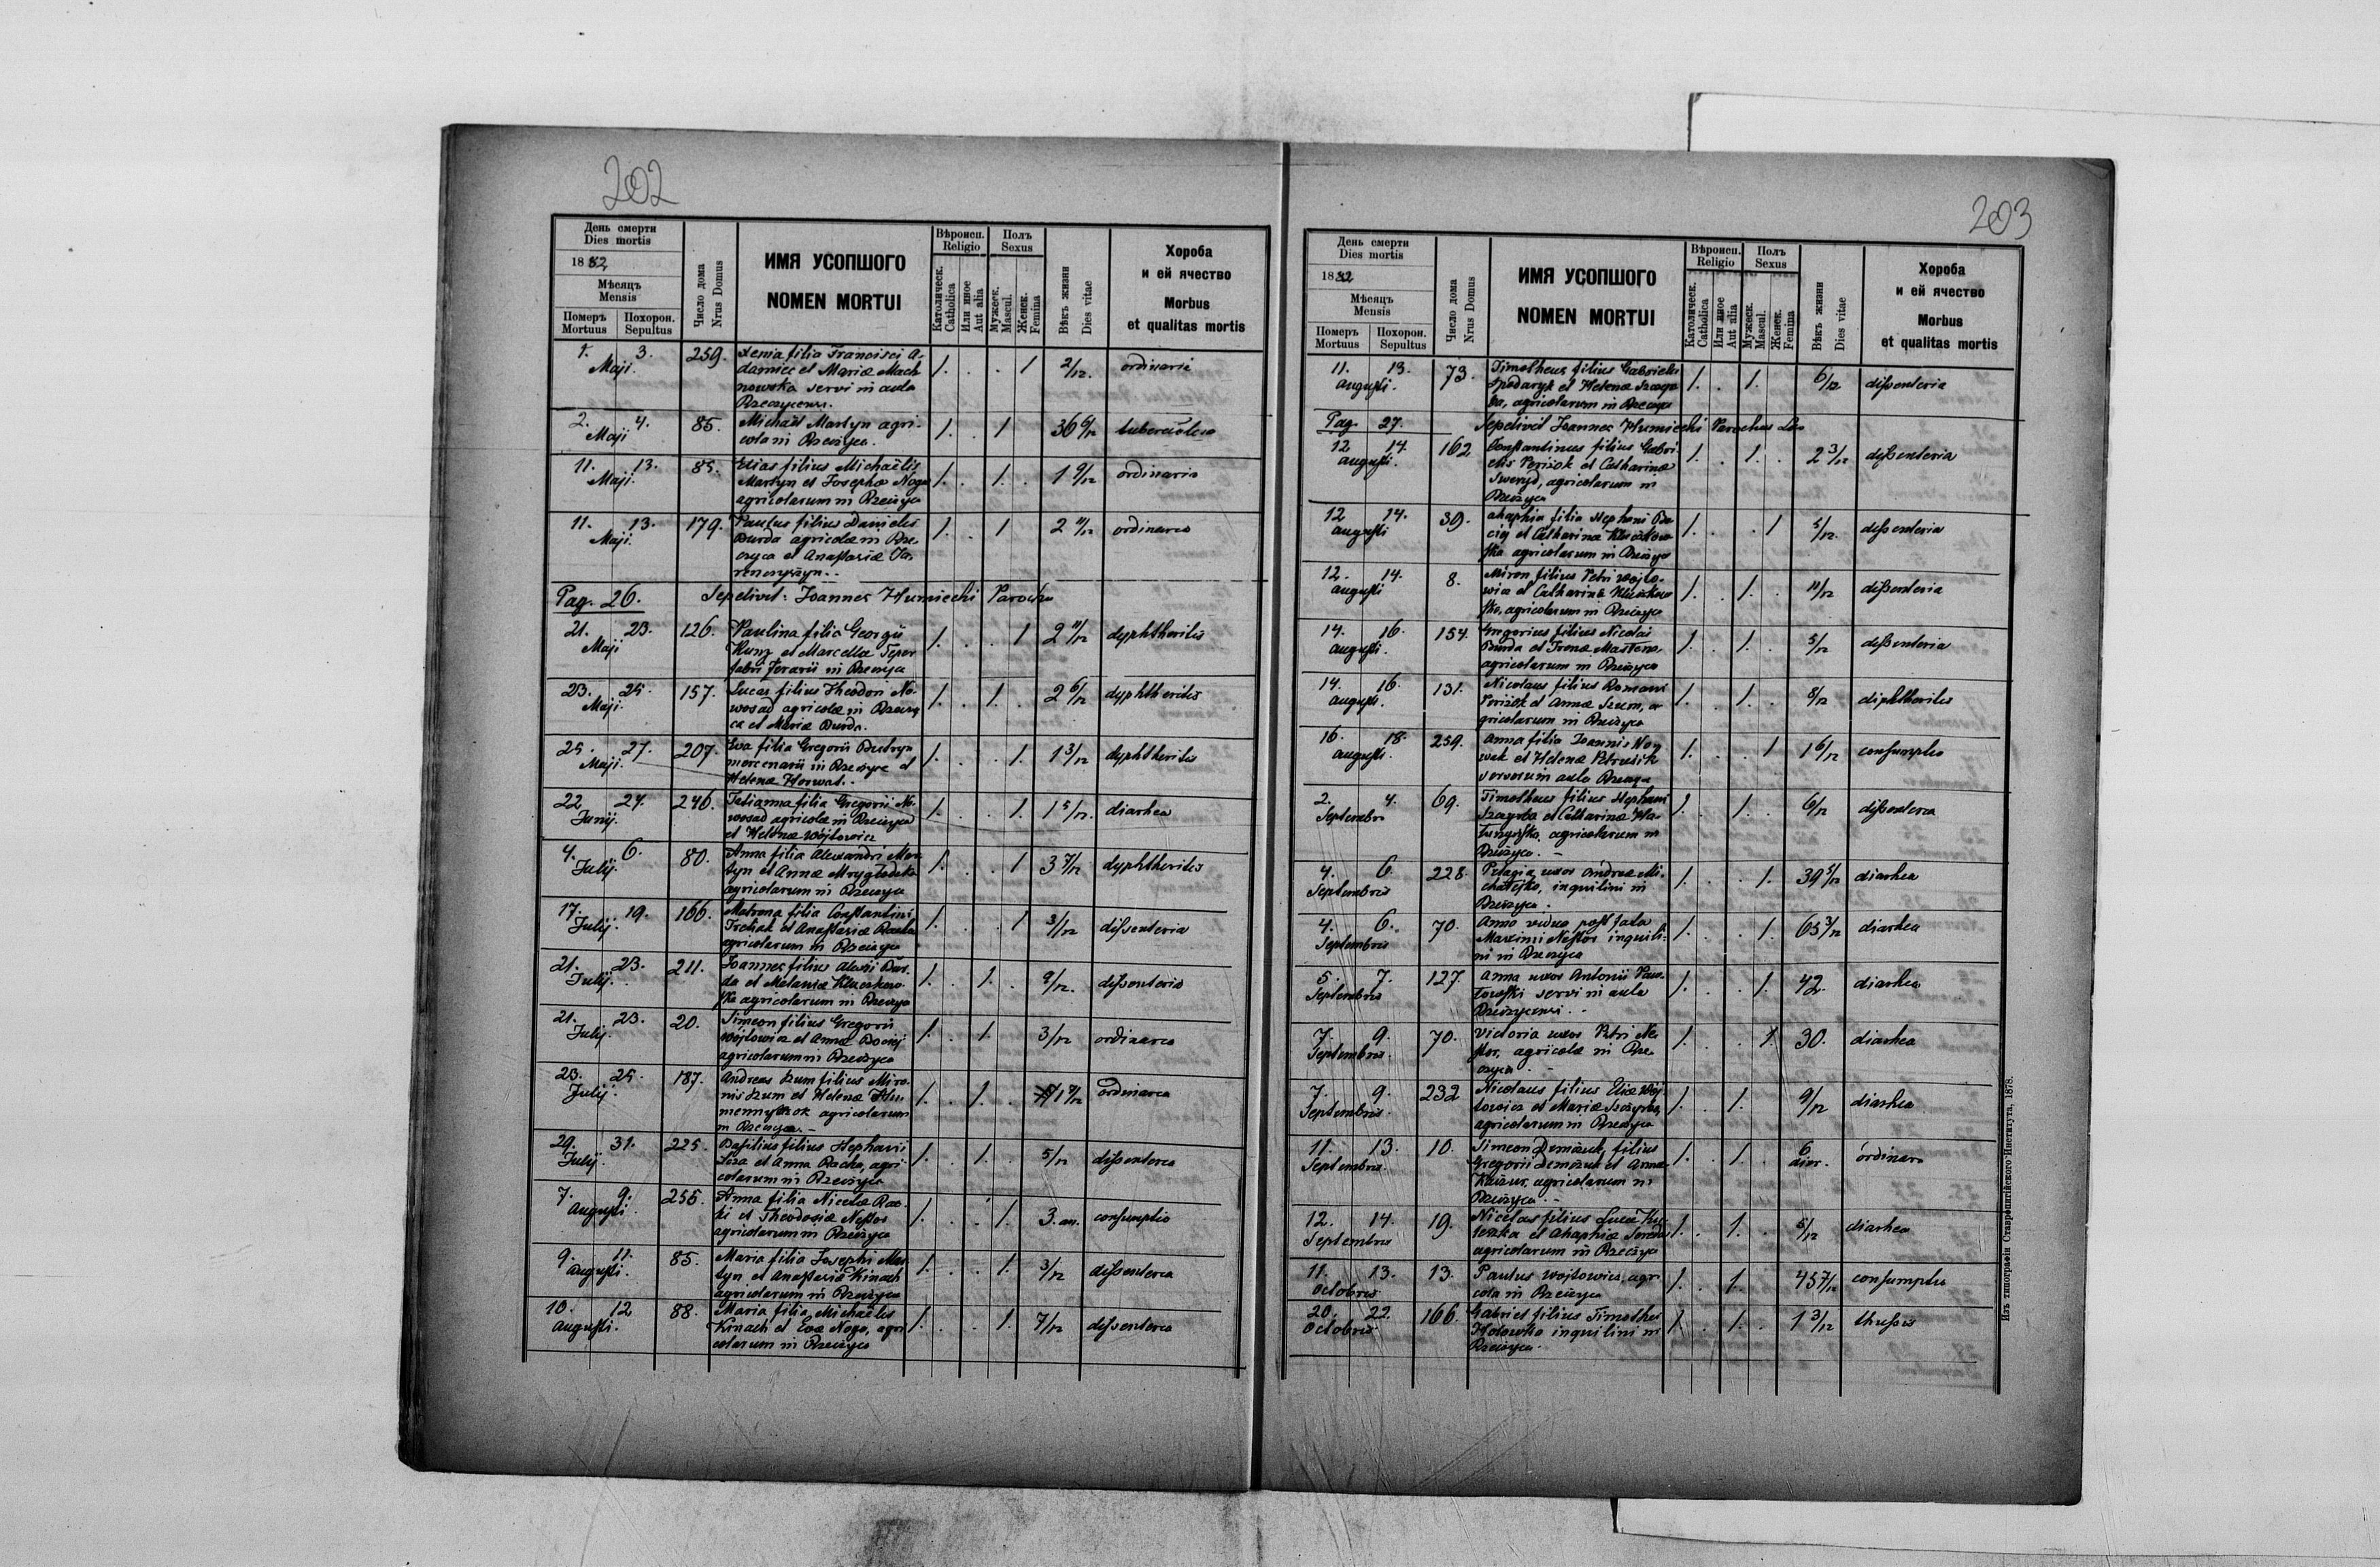 202
День смерти
Dies mortis
1882
Мѣсяцъ
Mensis
Померъ
Mortuus
Похорон.
Sepultus
Число дома
Nrus Domus
ИМЯ УСОПШОГО
NOMEN MORTUI
Вѣроисп.
Religio
Католическ.
Catholica
Или иное
Aut alia
Полъ
Sexus
Мужеск.
Mascul.
Женск.
Femina
Вѣкъ жизни
Dies vitae
Хороба
и ей ячество
Morbus
et qualitas mortis
1. 3. Maji. 259. Xenia filia Francisci A-
damiec et Mariæ Mach
nowska servi in aula
1. . . 1 2/12. ordinaria
2. 4. Maji 85. Michaël Martyn agri-
cola in Rzeczyca.
1. . 1 36 6/12 tuberculosa
11. 13. Maji. 85. Elias filius Michaëlis
Martyn et Josephæ Noga
agricolarum in Rzeczyca
1. . 1. . 1 9/12 ordinaria
11. 13. Maji. 179. Paulus filius Danielis
Burda agricolæ in Rze-
czyca et Anastasiæ
1. . 1 2 11/12 ordinarea
Pag. 26. Sepelivit: Joannes Humiecki Parochus
21. 23. Maji 126. Paulina filia Georgii
Kunz et Marcellæ Teper
fabri ferarii in Rzeczyca
1. . . 1 2 11/12 dyphtheritis
23. 25. Maji. 157. Lucas filius Theodori No-
wosad agricolæ in Rzeczy
ca et Mariæ Burda.
1. . 1. . 2 6/12 dyphtheritis
25. 27. Maji. 207. Eva filia Gregorii Butryn
mercenarii in Rzeczyca et
Helenæ Horwat.
1. . . 1. 1 3/12 dyphtheritis
22 24. Junij. 246. Tatianna filia Gregorii No-
wosad agricolæ in Rzeczyca
et Helenæ Wójtowicz
1. . . 1. 1 5/12. diarhea
4. 6. Julij. 80. Anna filia Alexandri Mar
tyn et Annæ
agricolarum in Rzeczyca
1. . . 1 3 7/12 dyphtheritis
17. 19. Julij. 166. Matrona filia Constantini
et Anastasiæ
agricolarum in Rzeczyca
1. . . 1 3/12 dissenteria
21. 23. Julij. 211. Joannes filius Alexii Bur-
da et Melaniæ Kluczkow-
ska agricolarum in Rzeczyca
1. . 1. . 9/12. dissenteria
21. 23. Julij. 20. Simeon filius Gregorii
Wójtowicz et Annæ
agricolarum in Rzeczyca
1. . 1. 3/12 ordinarea
23. 25. Julij. 187. Andreas Szum filius Miro-
nis Szum et Helenæ
agricolarum
in Rzeczyca.
1. . 1. . ordinarea
29. 31. Julij. 225. Basilius filius Stephani
et Anna agri
colarum in Rzeczyca
1. . 1. . 5/12 dissenterea
7. 9. Augusti. 255. Anna filia Nicolæ
et Theodosiæ Nestor
agricolarum in Rzeczyca
1. . . 1. 3. an. consumptio
9. 11. Augusti. 85. Maria filia Josephi Mar
tyn et Anastasiæ Kinach
agricolarum in Rzeczyca
1. . . 1. 3/12 dissenterea
10. 12 Augusti. 88. Maria filia Michaëlis
Kinach et Evæ Noga, agri
colarum in Rzeczyca
1. . . 1. 7/12 dissenterea
203
День смерти
Dies mortis
1882
Мѣсяцъ
Mensis
Померъ
Mortuus
Похорон.
Sepultus
Число дома
Nrus Domus
ИМЯ УСОПШОГО
NOMEN MORTUI
Вѣроисп.
Religio
Католическ.
Catholica
Или иное
Aut alia
Полъ
Sexus
Мужеск.
Mascul.
Женск.
Femina
Вѣкъ жизни
Dies vitae
Хороба
и ей ячество
Morbus
et qualitas mortis
11. 13. Augusti. 73. Timotheus filius Gabrielis
Spodaryk et Helenæ
agricolarum in Rzeczyca
1. . 1. 6/12 dissenteria
Pag. 27. Sepelivit Joannes Humiecki Parochus
12 14. Augusti. 162 Constantinus filius Gabri-
elis et Catharinæ
agricolarum in
Rzeczyca
1. . 1. . 2 3/12 dissenteria
12 14. Augusti 39. Ahaphia filia Stephani
et Catharinæ
agricolarum in Rzeczyca
1. . . 1 5/12. dissenteria
12. 14. Augusti 8. Miron filius Petri Wojto-
wicz et Catharinæ Kluczkow
ska, agricolarum in Rzeczyca
1. . 1. . 11/12 dissenteria
14. 16. Augusti. 154. Gregorius filius Nicolai
Burda et Irenæ
agricolarum in Rzeczyca
1. . 1. . 5/12 dissenteria
14. 16. Augusti. 131. Nicolaus filius Romani
et Annæ Szum, a-
gricolarum in Rzeczyca
1. . 1. . 8/12 diphtheritis
16. 18. Augusti. 259. Anna filia Joannis
et Helenæ
servorum aula
1. . . 1 1 6/12 consumptio
2. 4. Septembris 69. Timotheus filius Stephani
et Catharinæ
agricolarum in
Rzeczyca.
1. . 1. . 6/12 dissenterea
4. 6. Septembris 228. Pelagia uxor Andreæ Mi-
inquilini in
Rzeczyca.
1. . . 1. 39 5/12 diarhea
4. 6. Septembris 70. Anna vidua post fata
Maximi Nestor inquili-
ni in Rzeczyca
1. . . 1. 65 3/12 diarhea
5. 7. Septembris 127. Anna uxor Antonii
servi in aula
1. . . 1. 42. diarhea
7. 9. Septembris. 70. Victoria uxor Petri Ne-
stor, agricolæ in Rze-
czyca.
1. . . 1. 30. diarhea
7. 9. Septembris. 232 Nicolaus filius Eliæ Wój-
towicz et Mariæ
agricolarum in Rzeczyca
1. . 1. 9/12 diarhea
11. 13. Septembris. 10. Simeon Demczuk, filius
Gregorii Demczuk et Annæ
agricolarum in
Rzeczyca.
1. . 1. . 6 dier. ordinar
12. 14. Septembris 19. Nicolas filius Lucæ
et Ahaphiæ
agricolarum in Rzeczyca
1. . 1. . 5/12 diarhea
11. 13. Octobris 13. Paulus Wojtowicz, agri-
cola in Rzeczyca
1. . 1. 45 7/12 consumptio
20. 22. Octobris 166. Gabriel filius Timothei
inquilini in
Rzeczyca.
1. . 1. . 1 3/12 thussis
Изъ типографіи Ставропигійского Института, 1878.